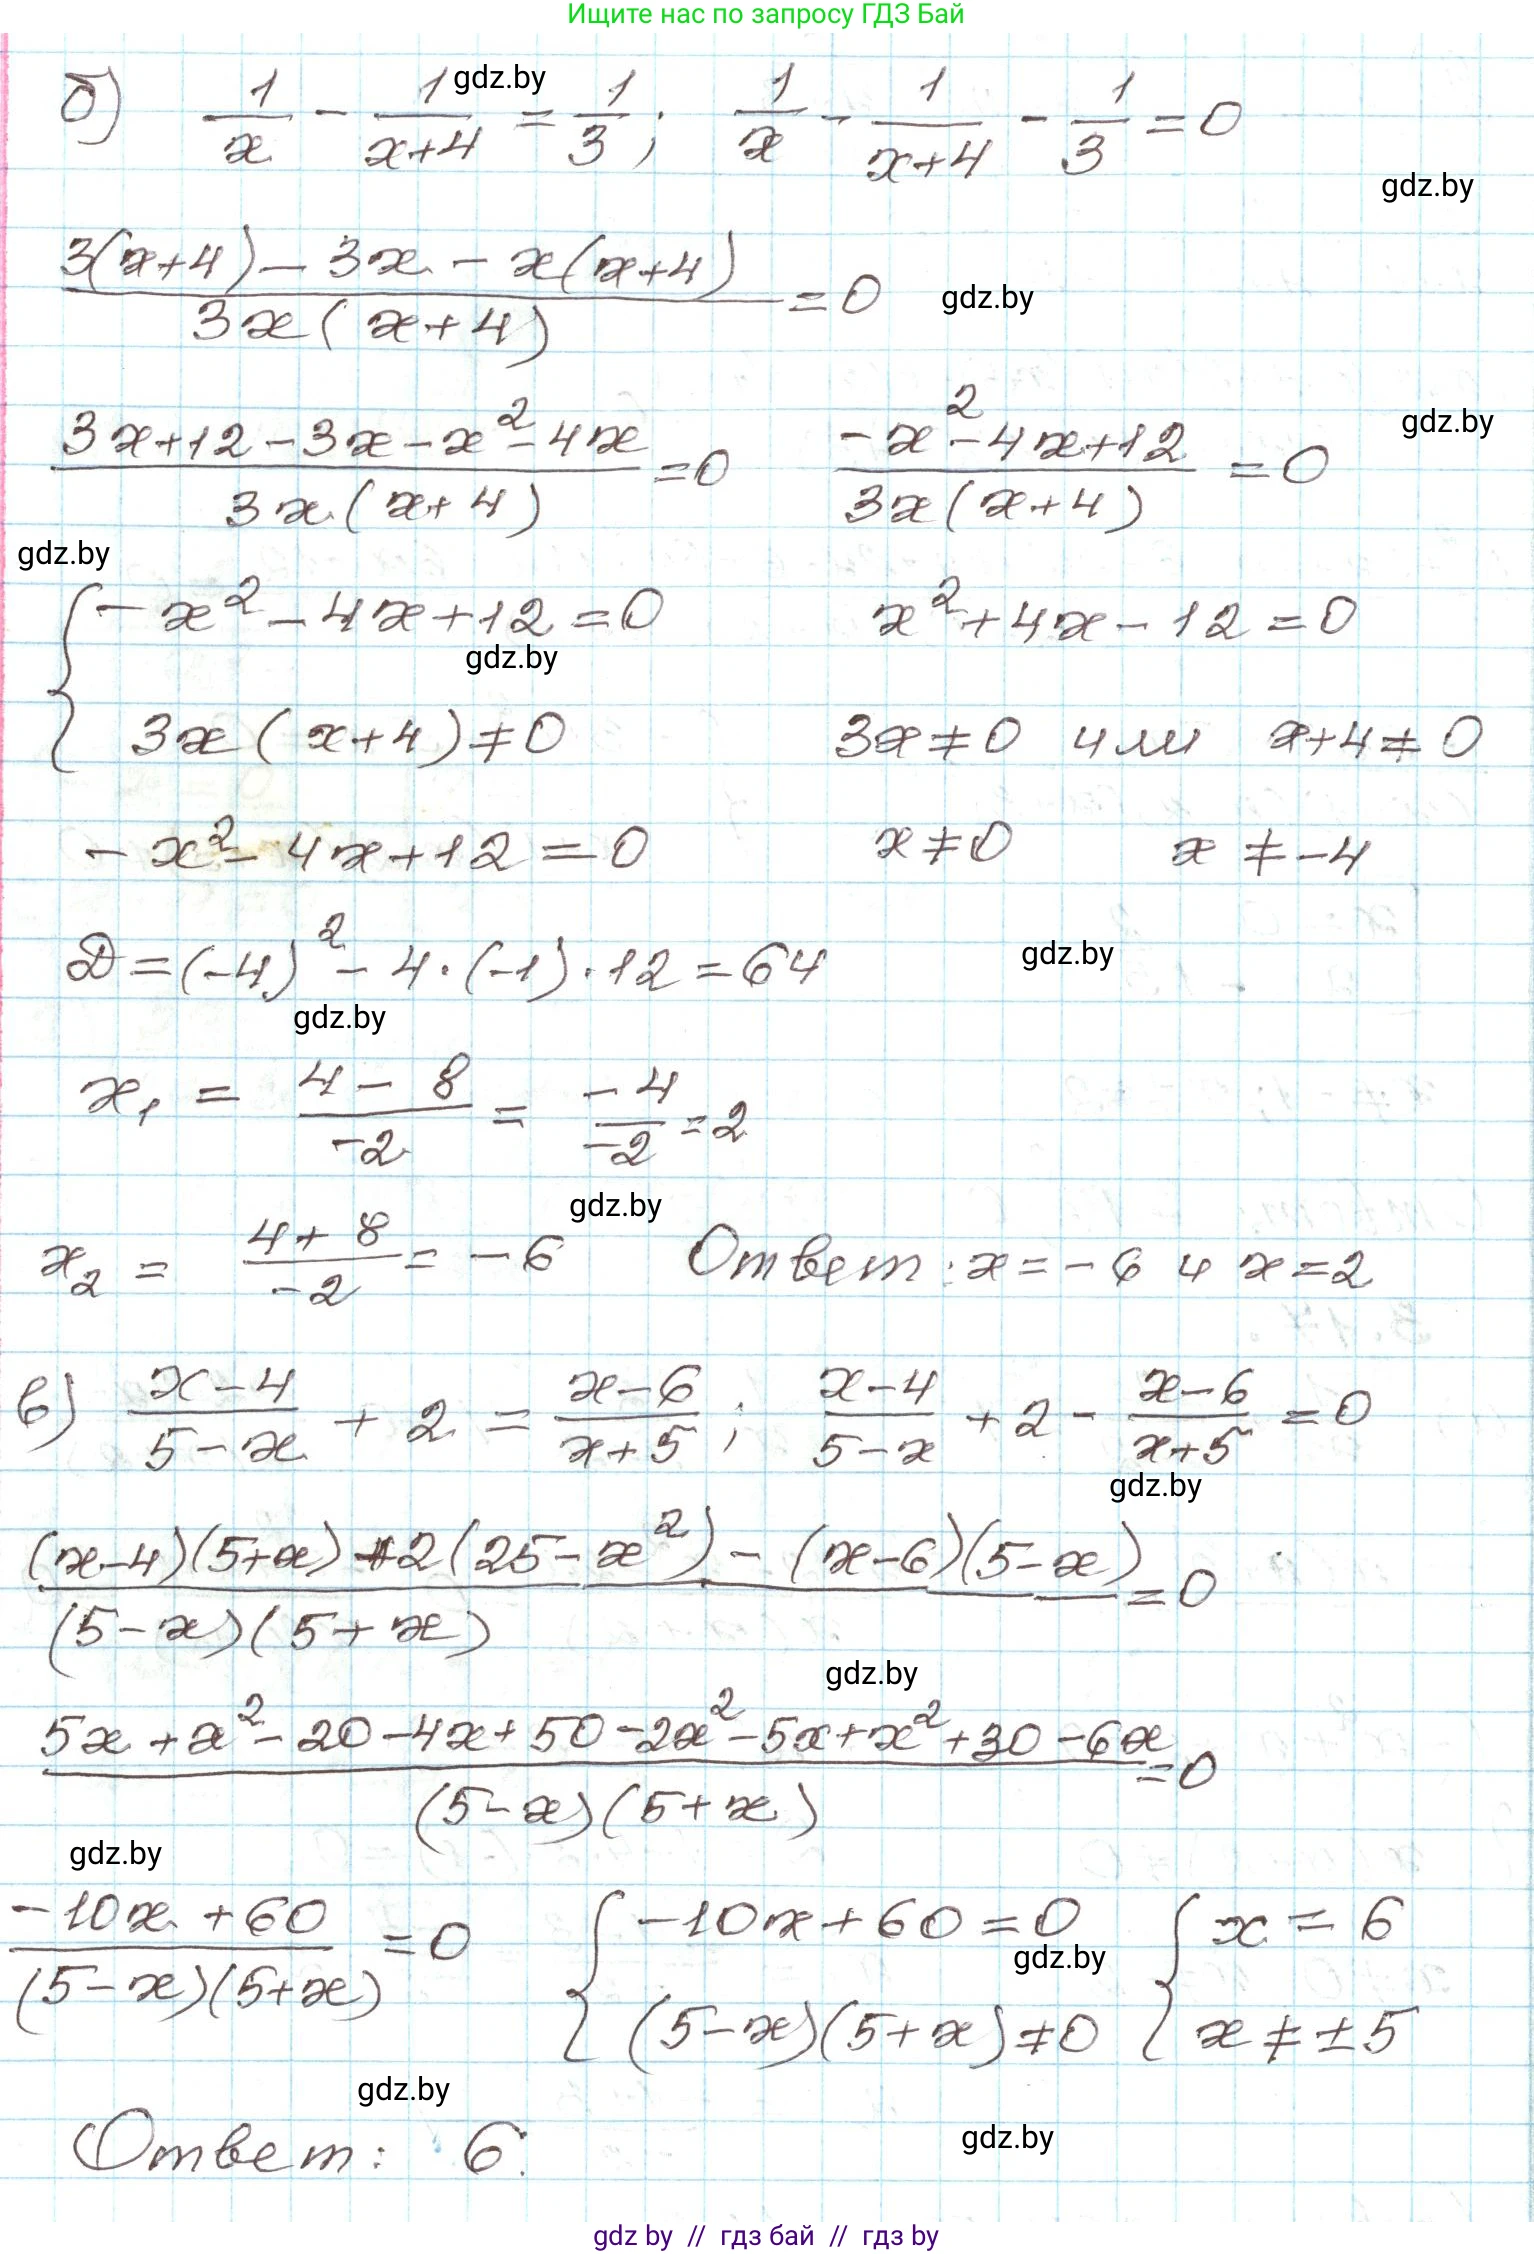 Ищите нас по запросу ГДЗ Бай
б) 1/x - 1/(x+4) = 1/3; 1/x - 1/(x+4) - 1/3 = 0
gdz.by
gdz.by
(3(x+4) - 3x - x(x+4))/(3x(x+4)) = 0
gdz.by
(3x+12-3x-x²-4x)/(3x(x+4)) = 0 (-x²-4x+12)/(3x(x+4)) = 0
gdz.by
gdz.by
{ -x²-4x+12=0 x²+4x-12=0
gdz.by
3x(x+4)≠0 3x≠0 или x+4≠0
-x²-4x+12=0 x≠0 x≠-4
D=(-4)²-4·(-1)·12=64
gdz.by
gdz.by
x₁ = (4-8)/(-2) = (-4)/(-2) = 2
gdz.by
x₂ = (4+8)/(-2) = -6 Ответ: x=-6 и x=2
в) (x-4)/(5-x) + 2 = (x-6)/(x+5); (x-4)/(5-x) + 2 - (x-6)/(x+5) = 0
gdz.by
((x-4)(5+x)+2(25-x²)-(x-6)(5-x))/((5-x)(5+x)) = 0
gdz.by
(5x+x²-20-4x+50-2x²-5x+x²+30-6x)/((5-x)(5+x)) = 0
gdz.by
(-10x+60)/((5-x)(5+x)) = 0 { -10x+60=0 { x=6
gdz.by
(5-x)(5+x)≠0 x≠±5
gdz.by
Ответ: 6.
gdz.by
gdz by // гдз бай // гдз by